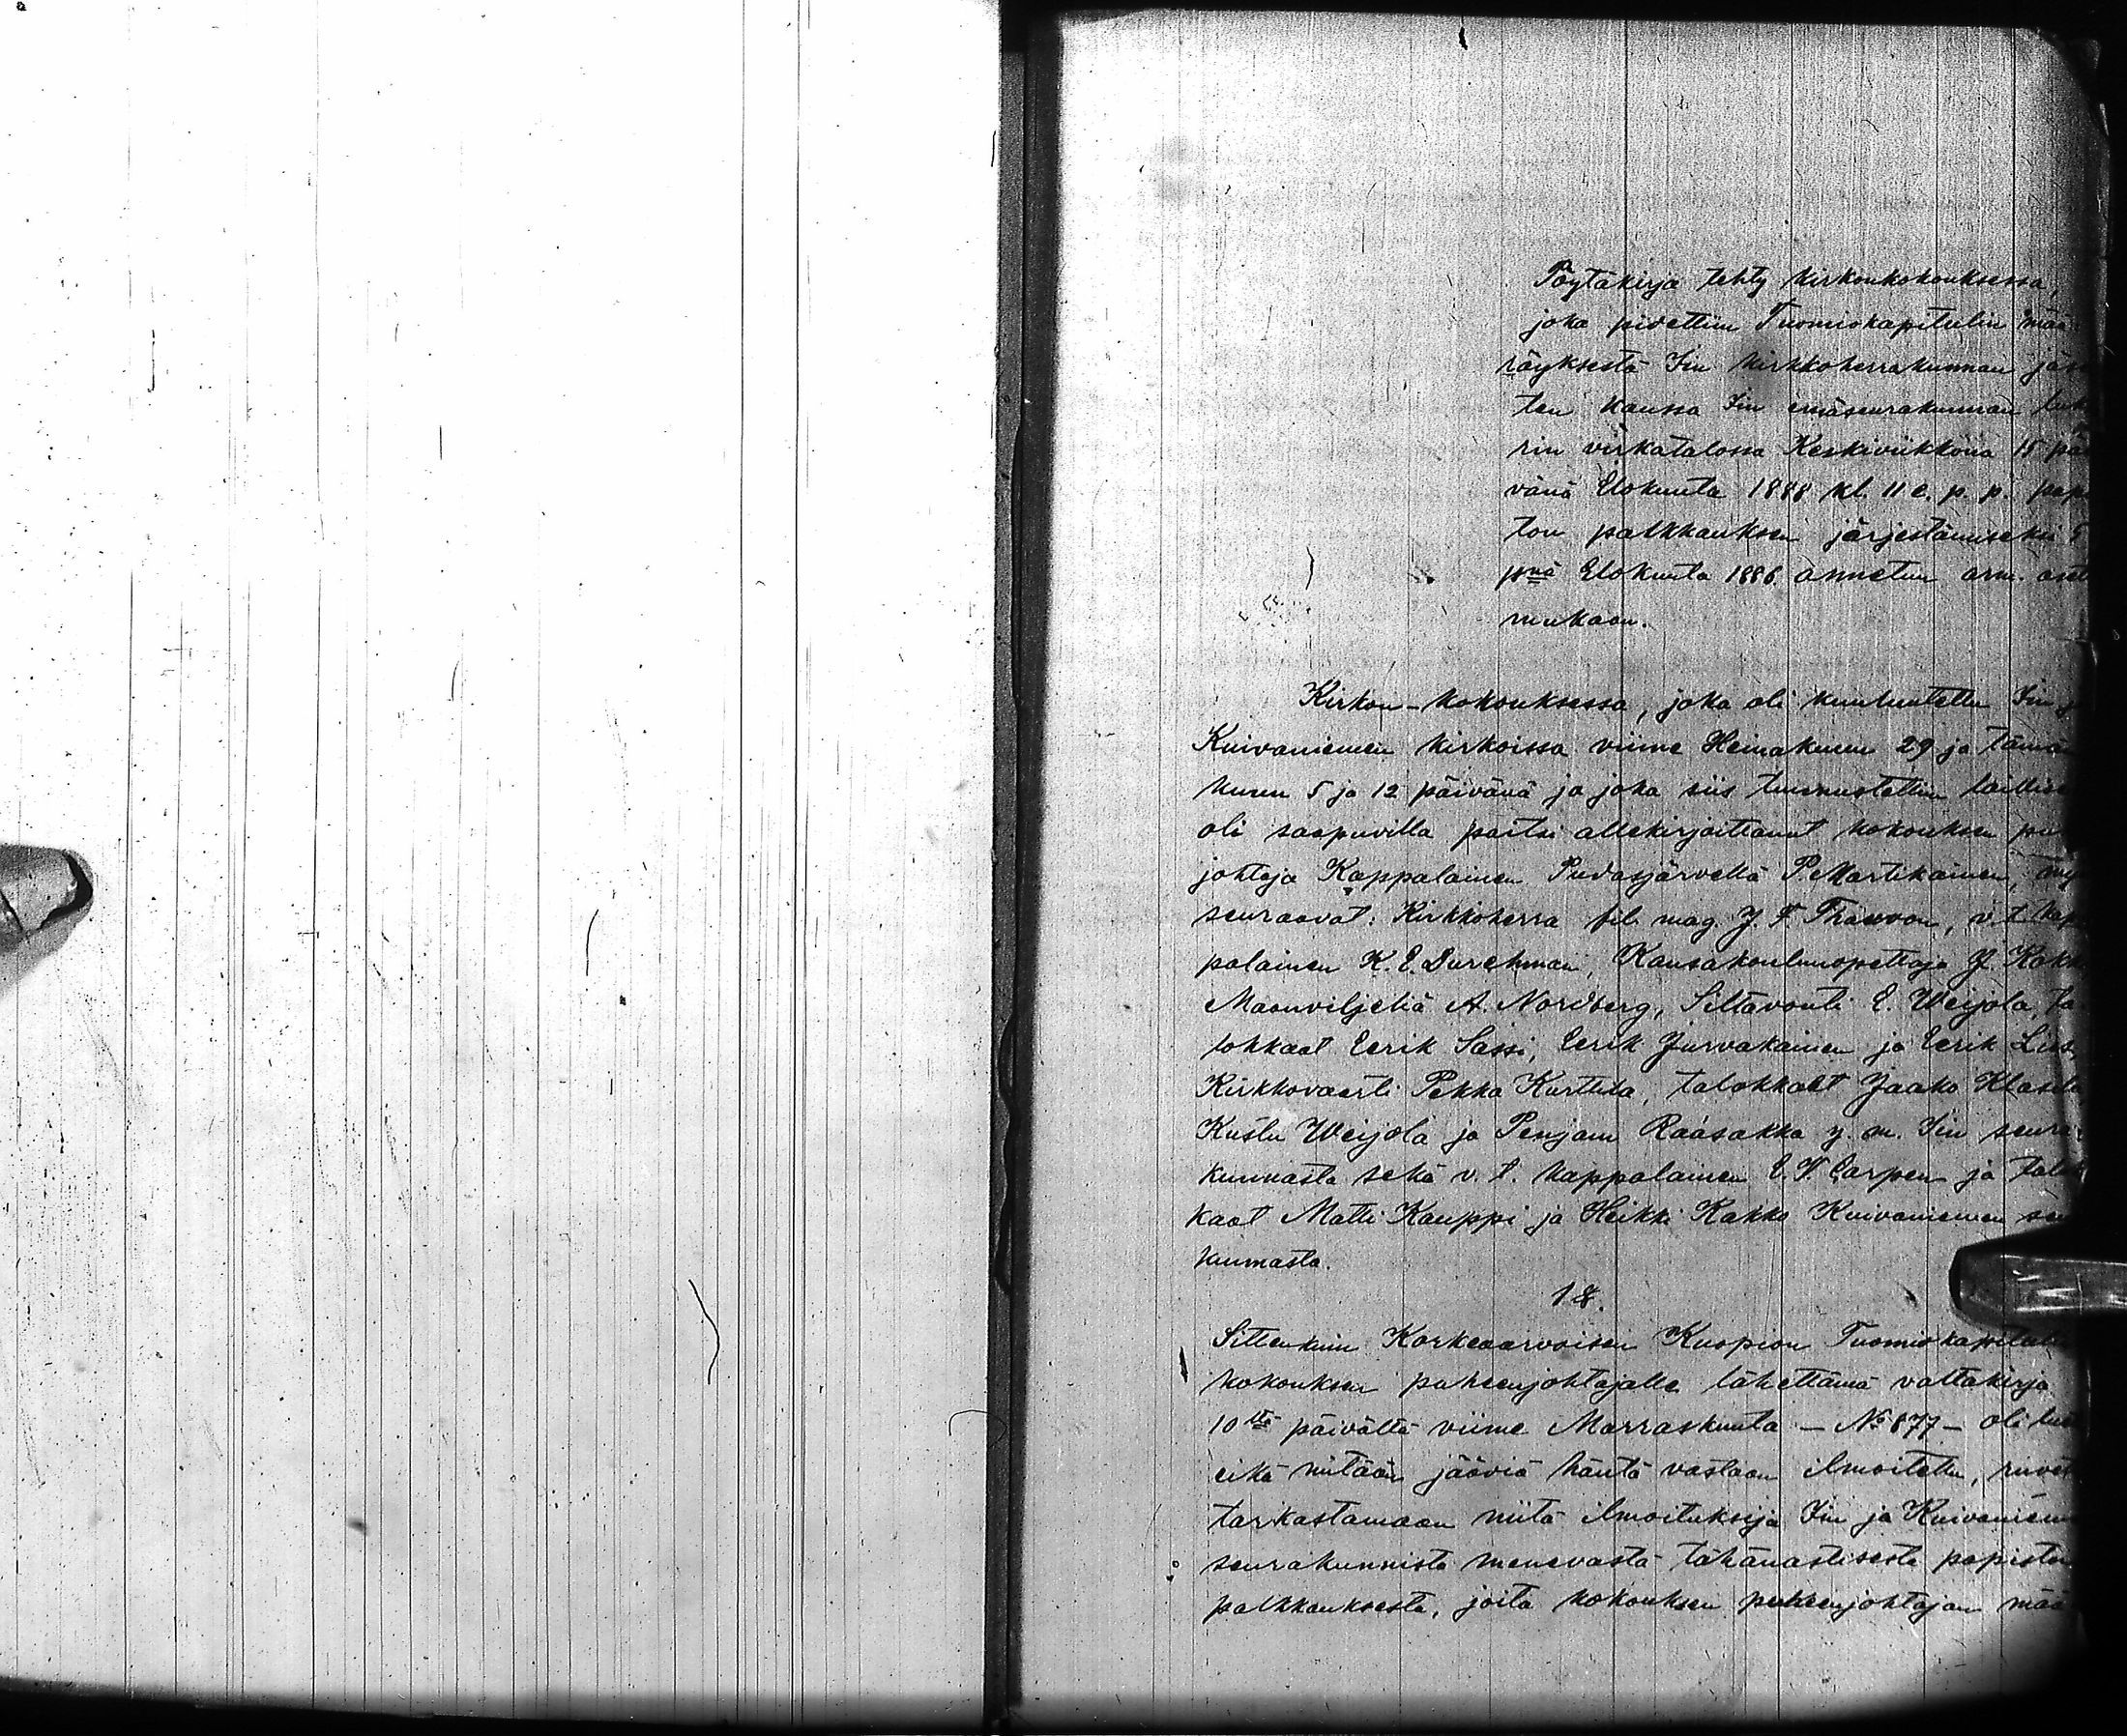 Pöytäkirja tehty kirkonkokouksessa,
joka pidettiin Tuomiokapitulin mää
räyksestä Iin kirkkoherrakunnan jäs
ten kanssa Iin emäseurakunnan
rin virkatalossa Keskiviikkona 15 päi
vänä Elokuuta 1888 kl. 11 e. p. p. pap
ton palkkauksen järjestämiseksi
pnä Elokuuta 1886 annetun arm. aset
mukaan.
Kirkon-kokouksessa, joka oli kuulutettu Iin j
Kuivaniemen kirkoissa viime Heinäkuun 29 ja tämän
kuun 5 ja 12 päivänä ja joka siis tunnustettiin laillise
oli saapuvilla paitsi allekirjoittanut kokouksen pu
johtaja Kappalainen Pudasjärveltä P. Martikainen, my
seuraavat: Kirkkoherra fil. mag. J. F. Thauvon, v. t. kap
palainen K. E. Durchman, Kansakoulunopettaja J. Kokk
Maanviljeliä A. Nordberg, Siltavouti E. Weijola, ta
lokkaat Eerik Sassi, Eerik Jurvakainen ja Eerik Liis
Kirkkovaarti Pekka Kurttila, talokkaat Jaako Klasila
Kustu Weijola ja Penjam Raasakka y. m. Iin seura
kunnasta sekä v. t. kappalainen E. V. Carpen ja talok
kaat Matti Kauppi ja Heikki Kakko Kuivaniemen seu
kunnasta.
1 §.
Sittenkuin Korkeaarvoisen Kuopion Tuomiokapitulin
kokouksen puheenjohtajalle lähettämä valtakirja
10ltä päivältä viime Marraskuuta - No 877 - oli lue
eikä mitään jääviä häntä vastaan ilmoitettu, ruvet
tarkastamaan niitä ilmoituksija Iin ja Kuivaniem
seurakunnista menevästä tähänastisesta papiston
palkkauksesta, joita kokouksen puheenjohtajan mää